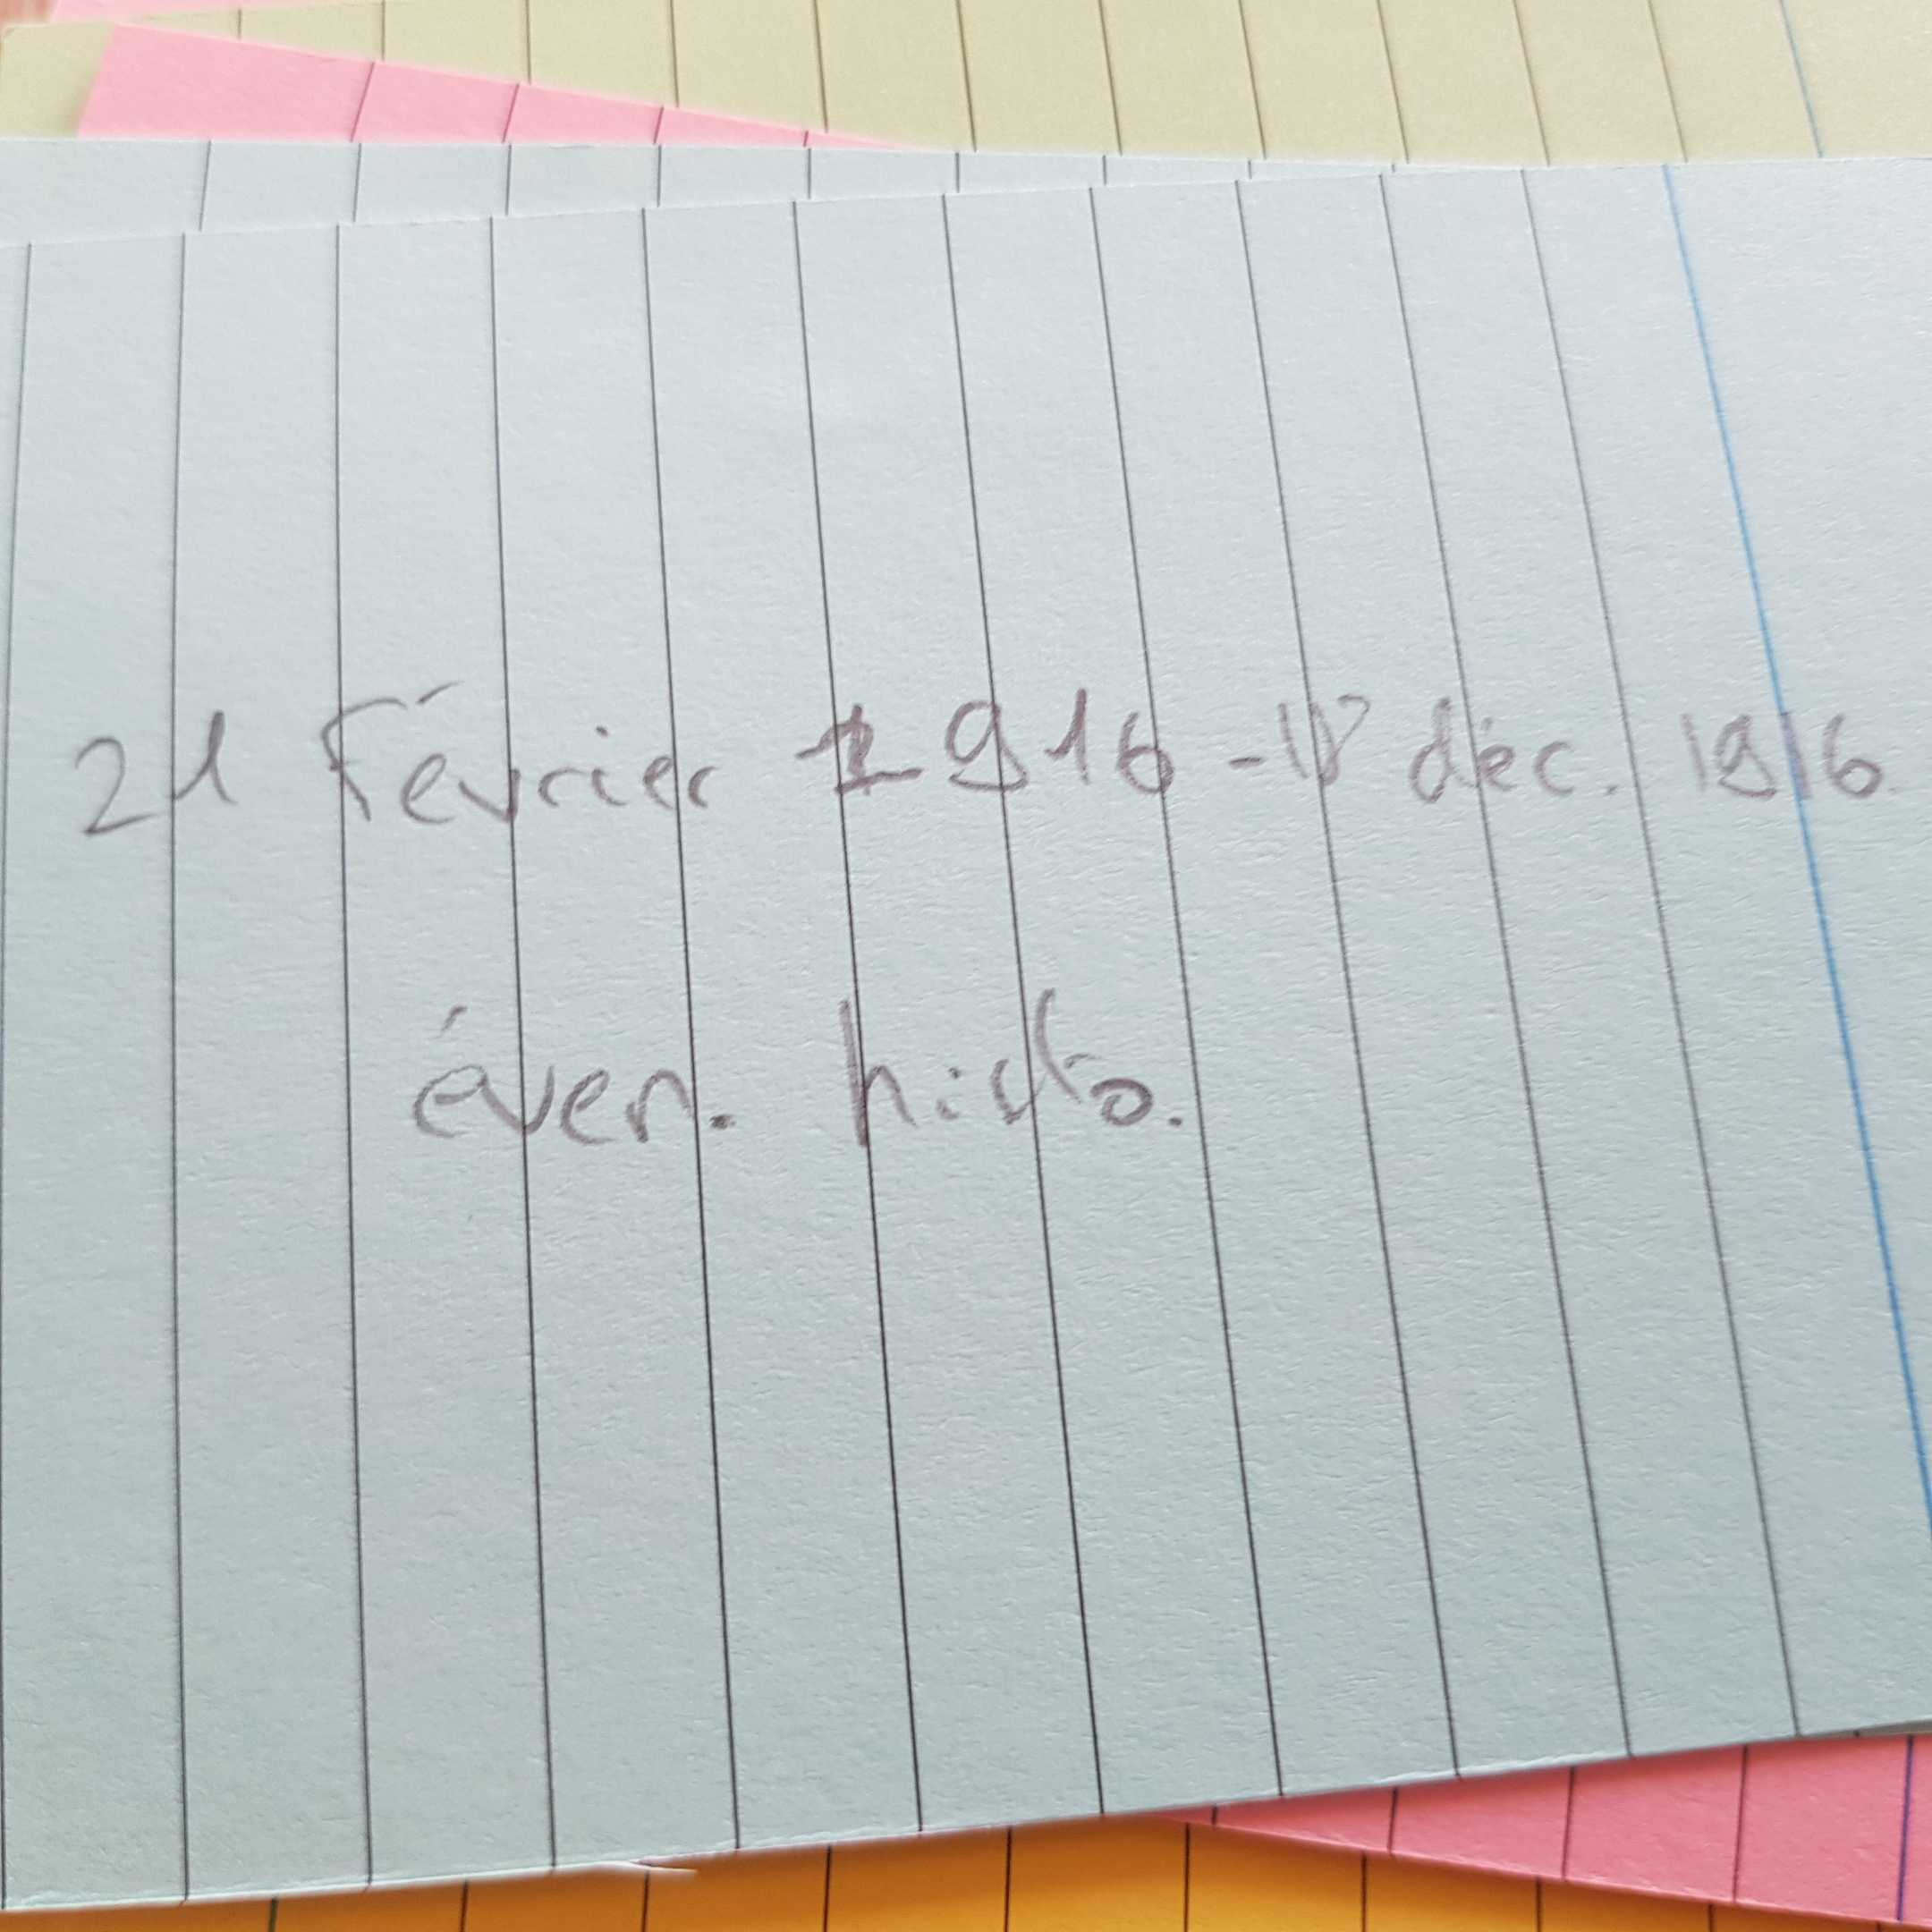 21 Février 1916 - 18 déc. 1916.
éven. histo.